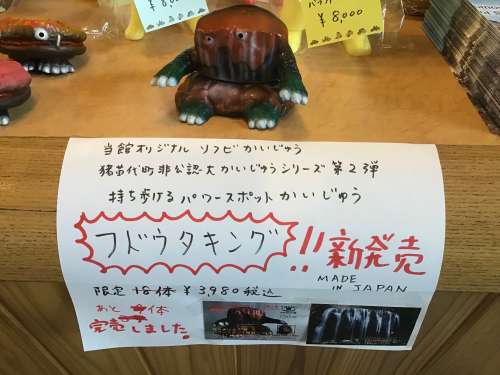 ¥8,000
¥8,000
当館オリジナル ソフビかいじゅう
猪苗代町非公認大かいじゅうシリーズ 第2弾
持ち歩けるパワースポットかいじゅう
フドウタキング!!新発売
MADE
IN JAPAN
限定18体 ¥3,980税込
あと 体
完売しました!